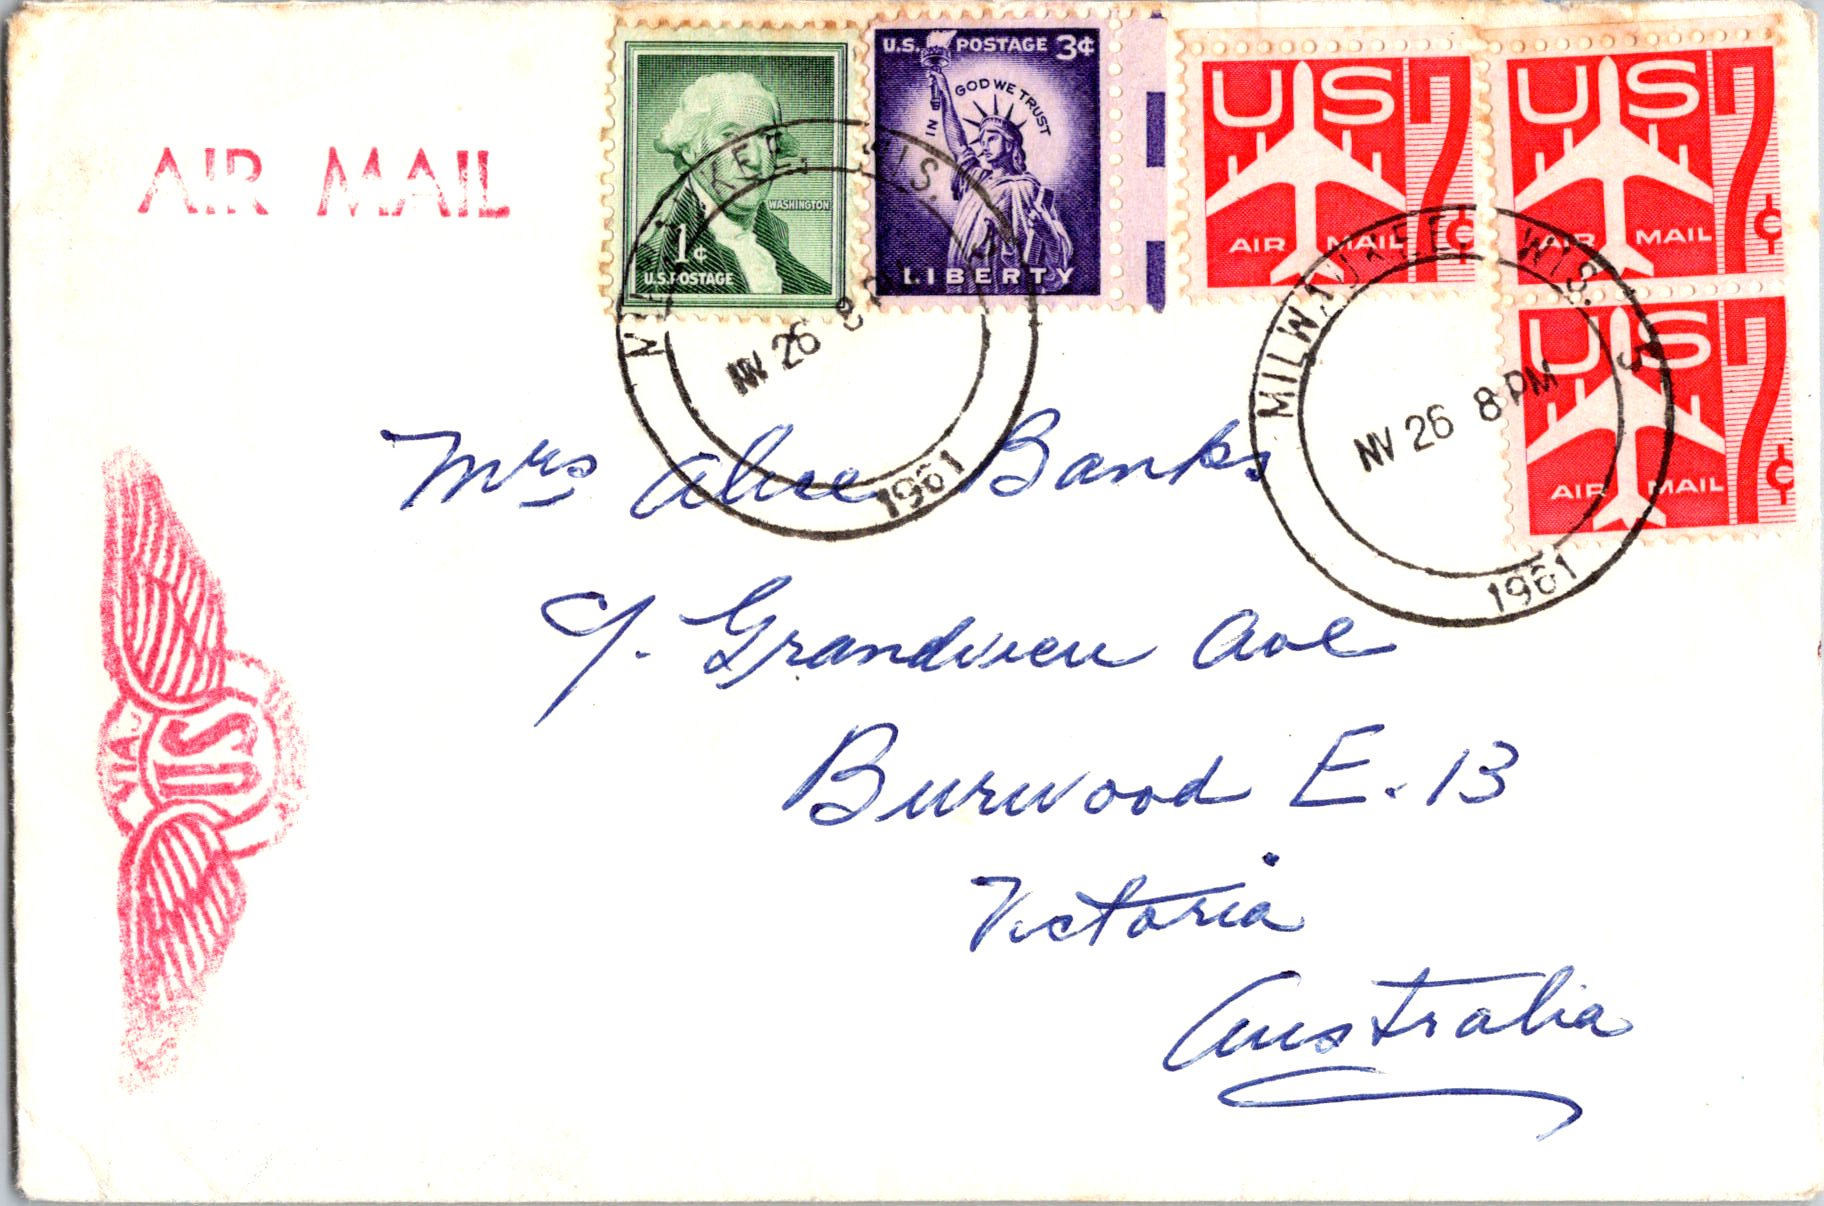 AIR MAIL
WASHINGTON
1¢
U.S. POSTAGE
U.S. POSTAGE 3¢
IN GOD WE TRUST
LIBERTY
US 7¢
AIR MAIL
US 7¢
AIR MAIL
US 7¢
AIR MAIL
NV 26 8 PM
1961
MILWAUKEE, WIS. 5
NV 26 8 PM
1961
Mrs Alice Banks
c/. Grandview Ave
Burwood E. 13
Victoria
Australia
VIA
US